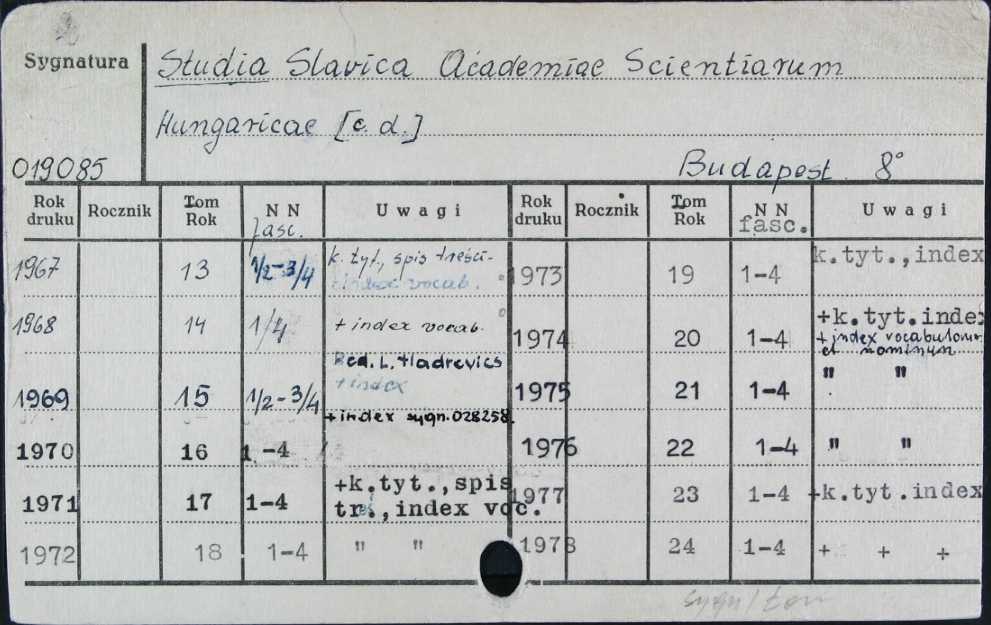 Sygnatura Studia Slavica Academiae Scientiarum
Hungaricae [c.d.]
019085 Budapest 8°
Rok druku Rocznik Tom Rok NN fasc. Uwagi Rok druku Rocznik Tom Rok NN fasc. Uwagi
1967 13 1/2-3/4 k. tyt., spis treści-
+index vocab.
1968 14 1/4 + index vocab.
Red. L. Hadrovics
1969 15 1/2-3/4 + index
+index sygn. 028258.
1970 16 1-4
1971 17 1-4 +k.tyt.,spis
tr.,index voc.
1972 18 1-4 " "
1973 19 1-4 k.tyt.,index
1974 20 1-4 +k.tyt.index
+index vocabulorum
et nominum
1975 21 1-4 " "
1976 22 1-4 " "
1977 23 1-4 +k.tyt.index
1978 24 1-4 + + +